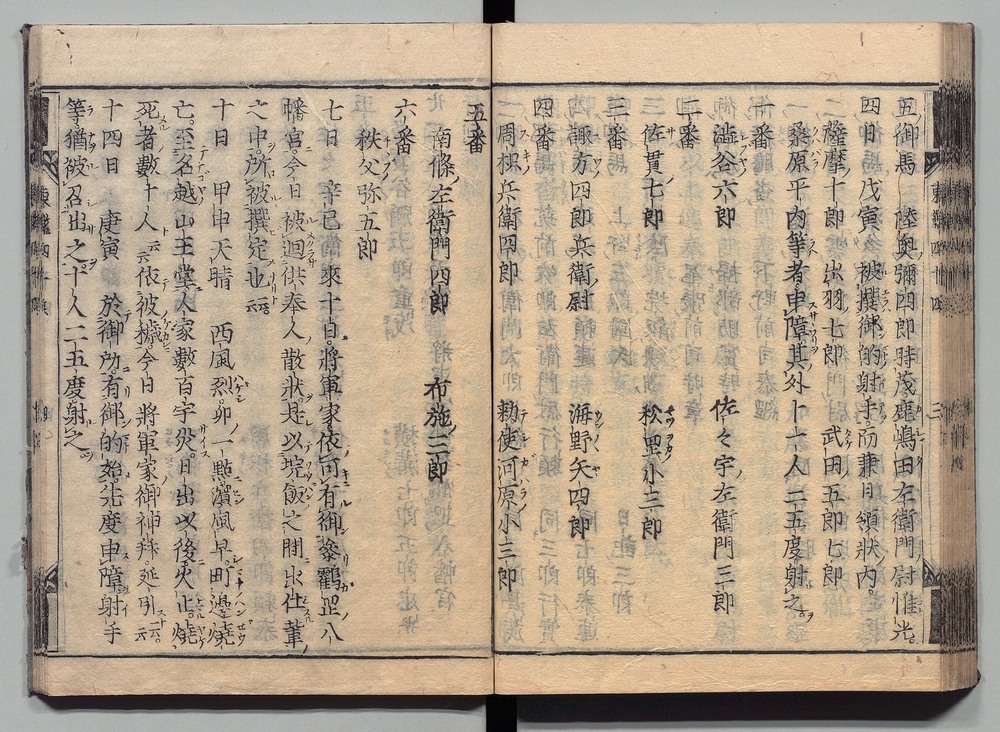 五御馬 陸奥彌四郎時茂 鹿嶋田左衛門尉惟光
四日 戊寅 今日被撰御的射手 而兼日領狀内
薩摩十郎 出羽七郎 武田五郎七郎
桑原平内等者申障 其外十人二五度射之
一番
澁谷六郎 佐々宇左衛門三郎
二番
佐貫七郎 松里小三郎
三番
諏方四郎兵衛尉 海野矢四郎
四番
周枳兵衛四郎 勅使河原小三郎
五番
南條左衛門四郎 布施三郎
六番
秩父弥五郎
七日 辛巳 來十一日 將軍家依可有御參鶴岡八
幡宮 今日被廻供奉人散狀 是以垸飯之間出仕輩
之中 所被撰定也云云
十日 甲申 天晴 西風烈 卯一點濱風早町邊燒
亡 至名越山王堂 人家數百宇災 日出以後火止 燒
死者數十人云云 依被穢今日將軍家御神拜延引云云
十四日 庚寅 於御所有御的始 先度申障射手
等猶被召出之 十人二五度射之
東鑑四十四
三